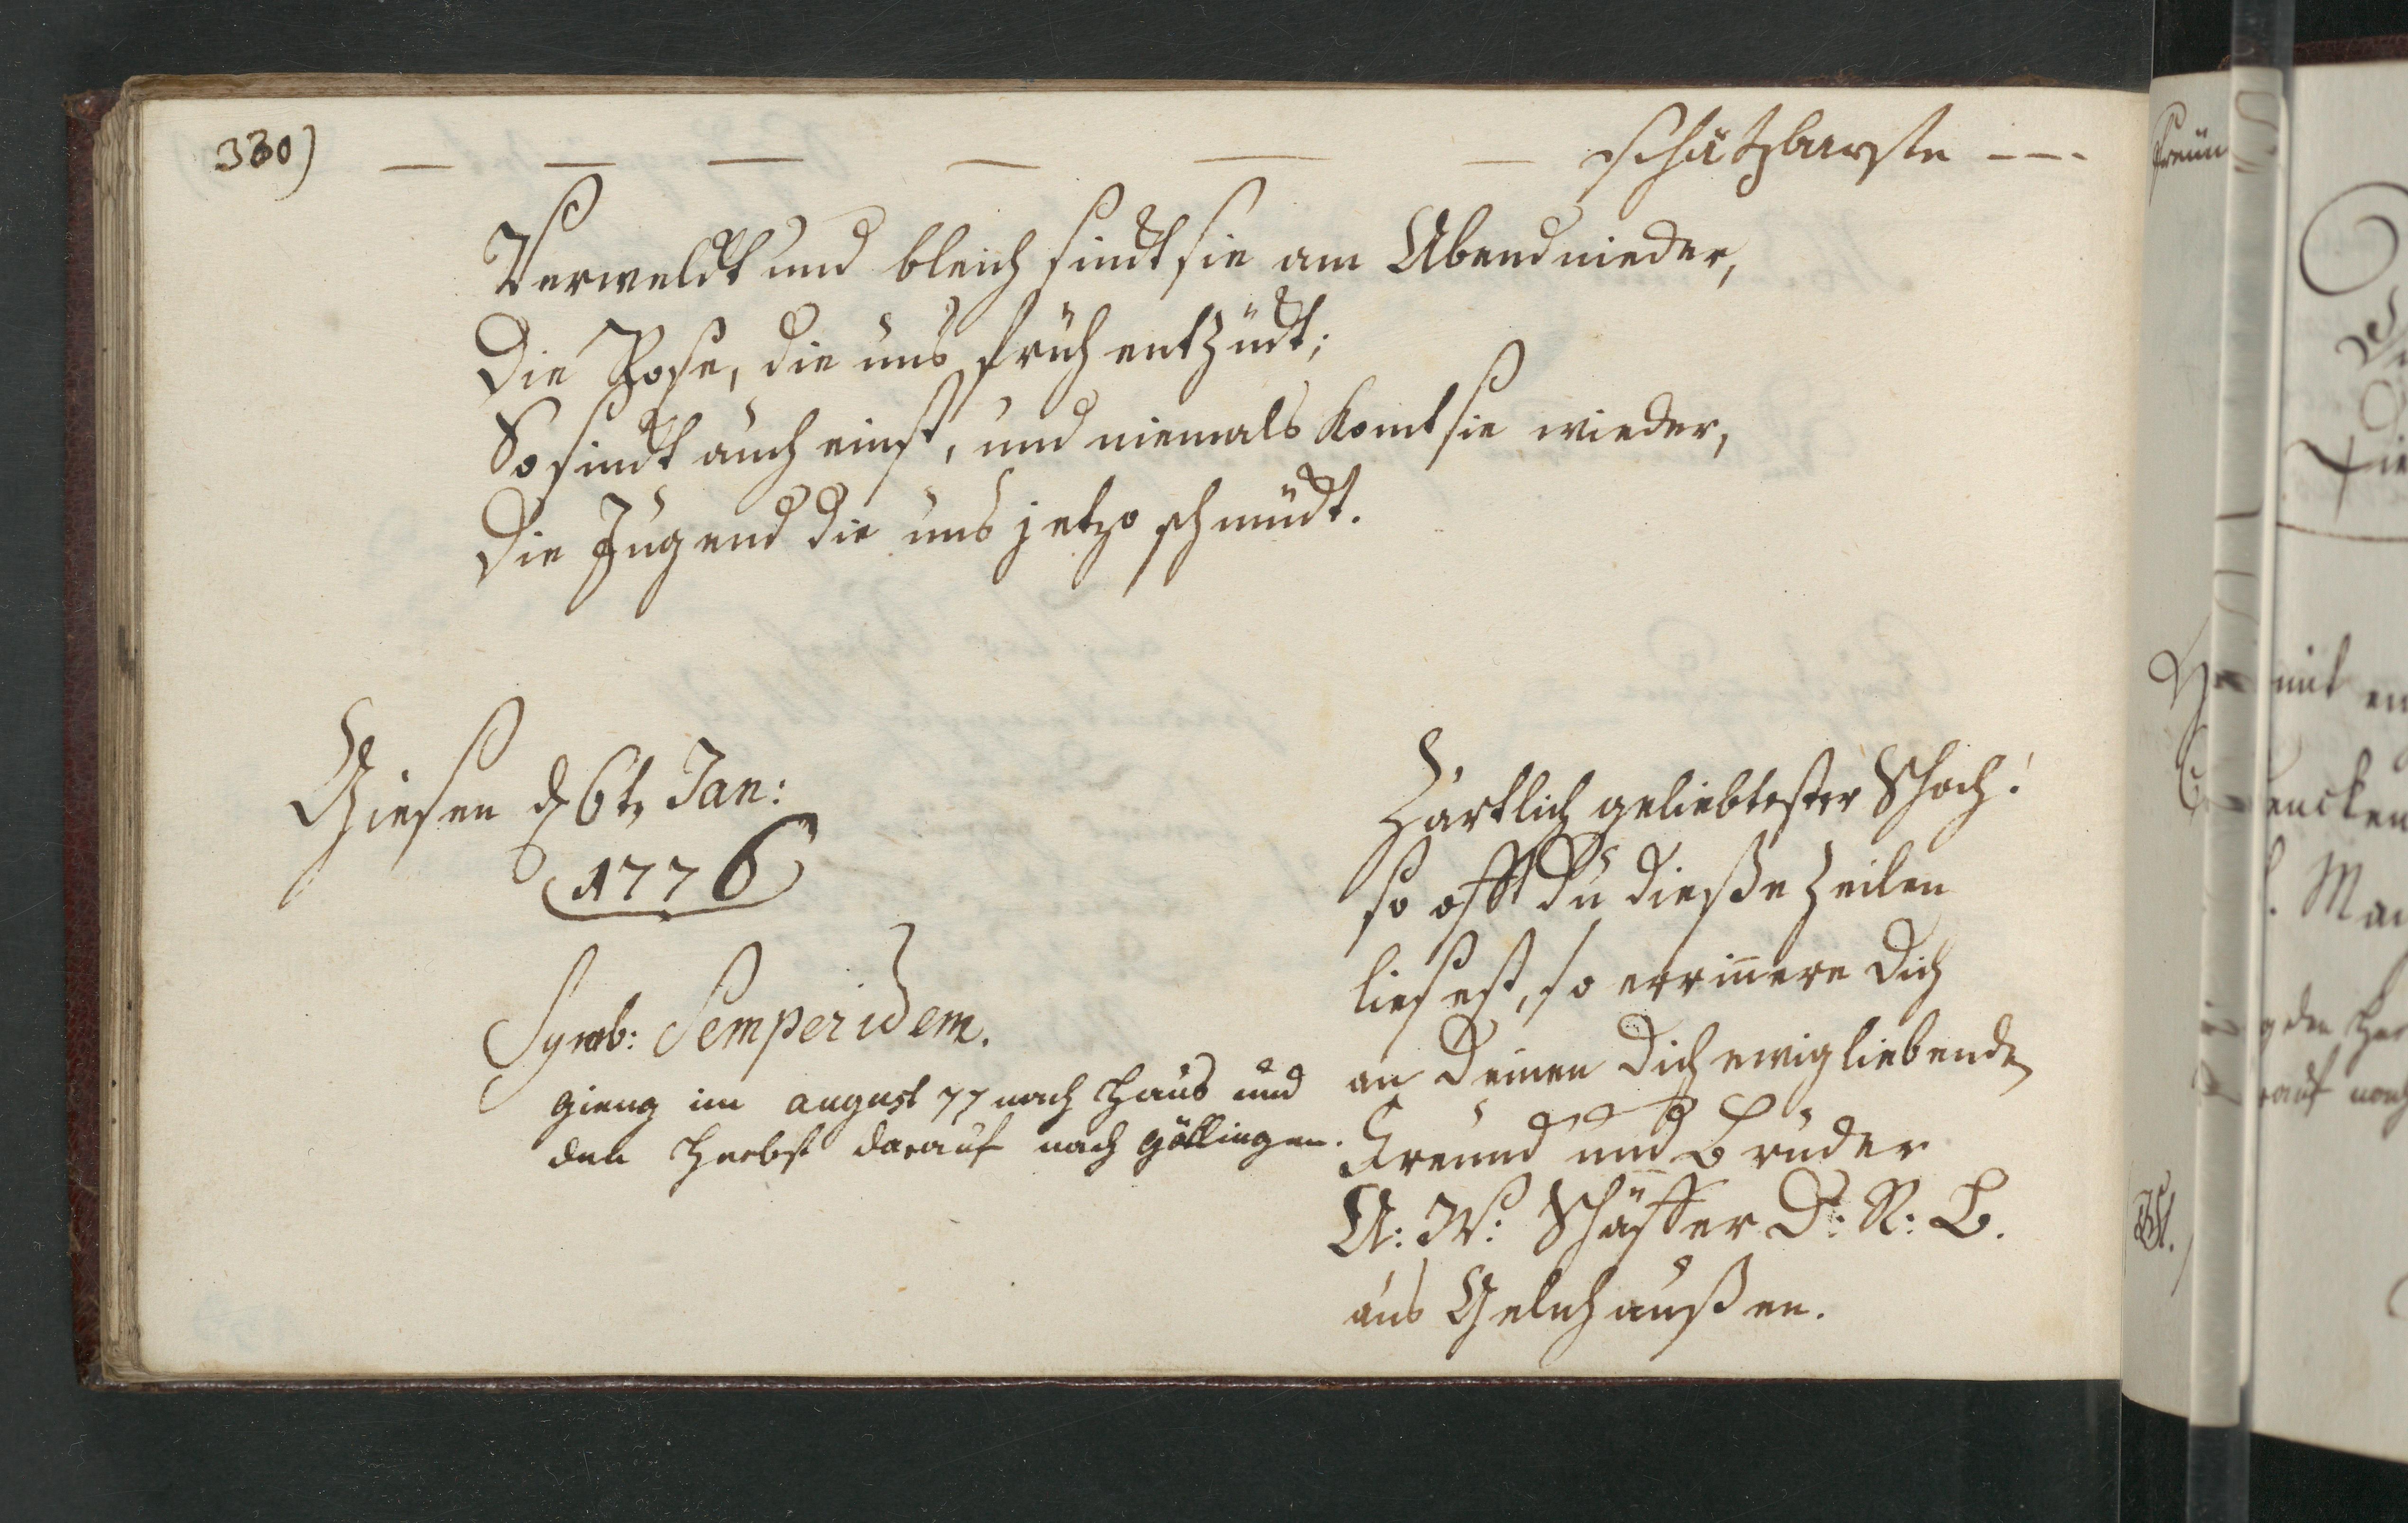 330) — — — — — — schätzbarste - - -
Verwelckt und bleich sinckt sie am Abend nieder,
Die Rose, die uns früh entzückt;
So sinckt auch einst, und niemals komt sie wieder,
Die Jugend die uns jetzo schmückt.
Giesen d 6t. Jan:
1776
Symb: Semper idem.
gieng im august 77 nach Haus und
den Herbst darauf nach Göttingen.
Zärtlich geliebtester Schoch!
so offt du dieße Zeilen
liesest, so errinnere dich
an Deinen Dich ewig liebenden
Freund und Bruder
A: W: Schäffer D: R: B.
aus Gelnhaußen.